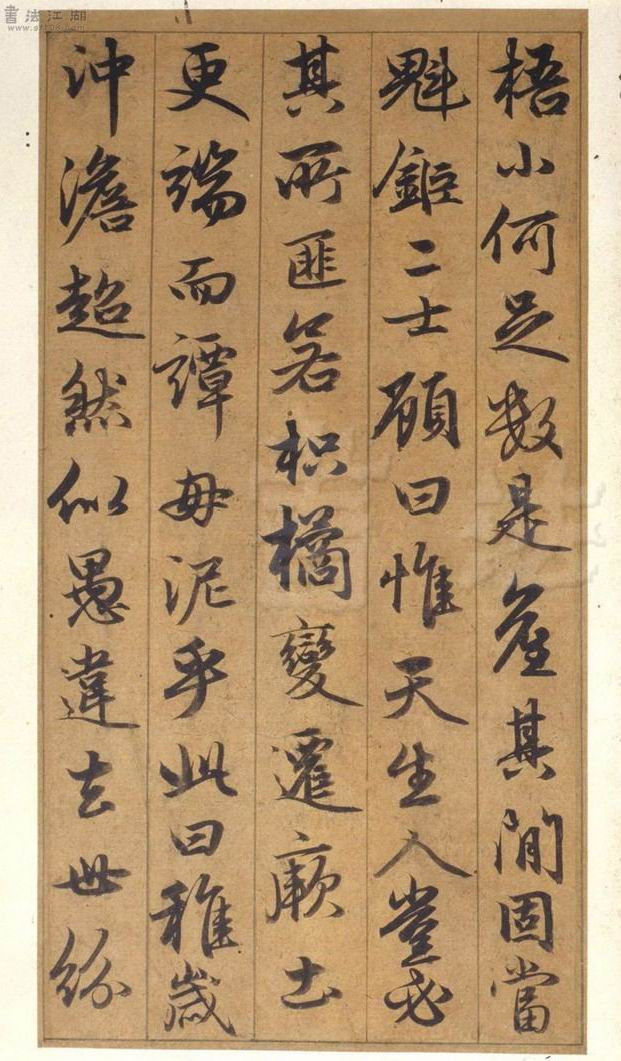 書法江湖
梧小何足数是產其間固當
魁鉅二士顧曰惟天生人豈必
其所匪若枳橘變遷厥土
更端而譚毋泥乎此曰稚歲
沖澹超然似愚違去世紛